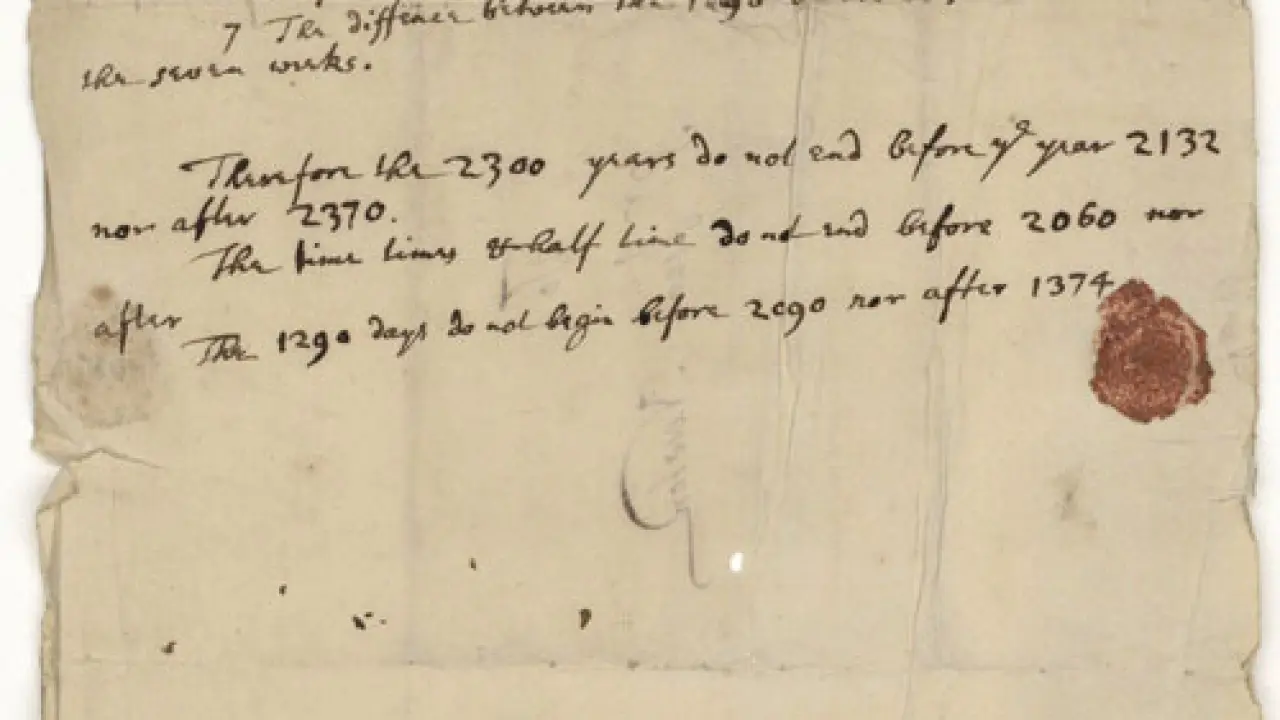 7 The diffence between the 1290
the seven weeks.
Therefore the 2300 years do not end before yᵉ year 2132
nor after 2370.
The time times & half time do not end before 2060 nor
after
The 1290 days do not begin before 2090 nor after 1374